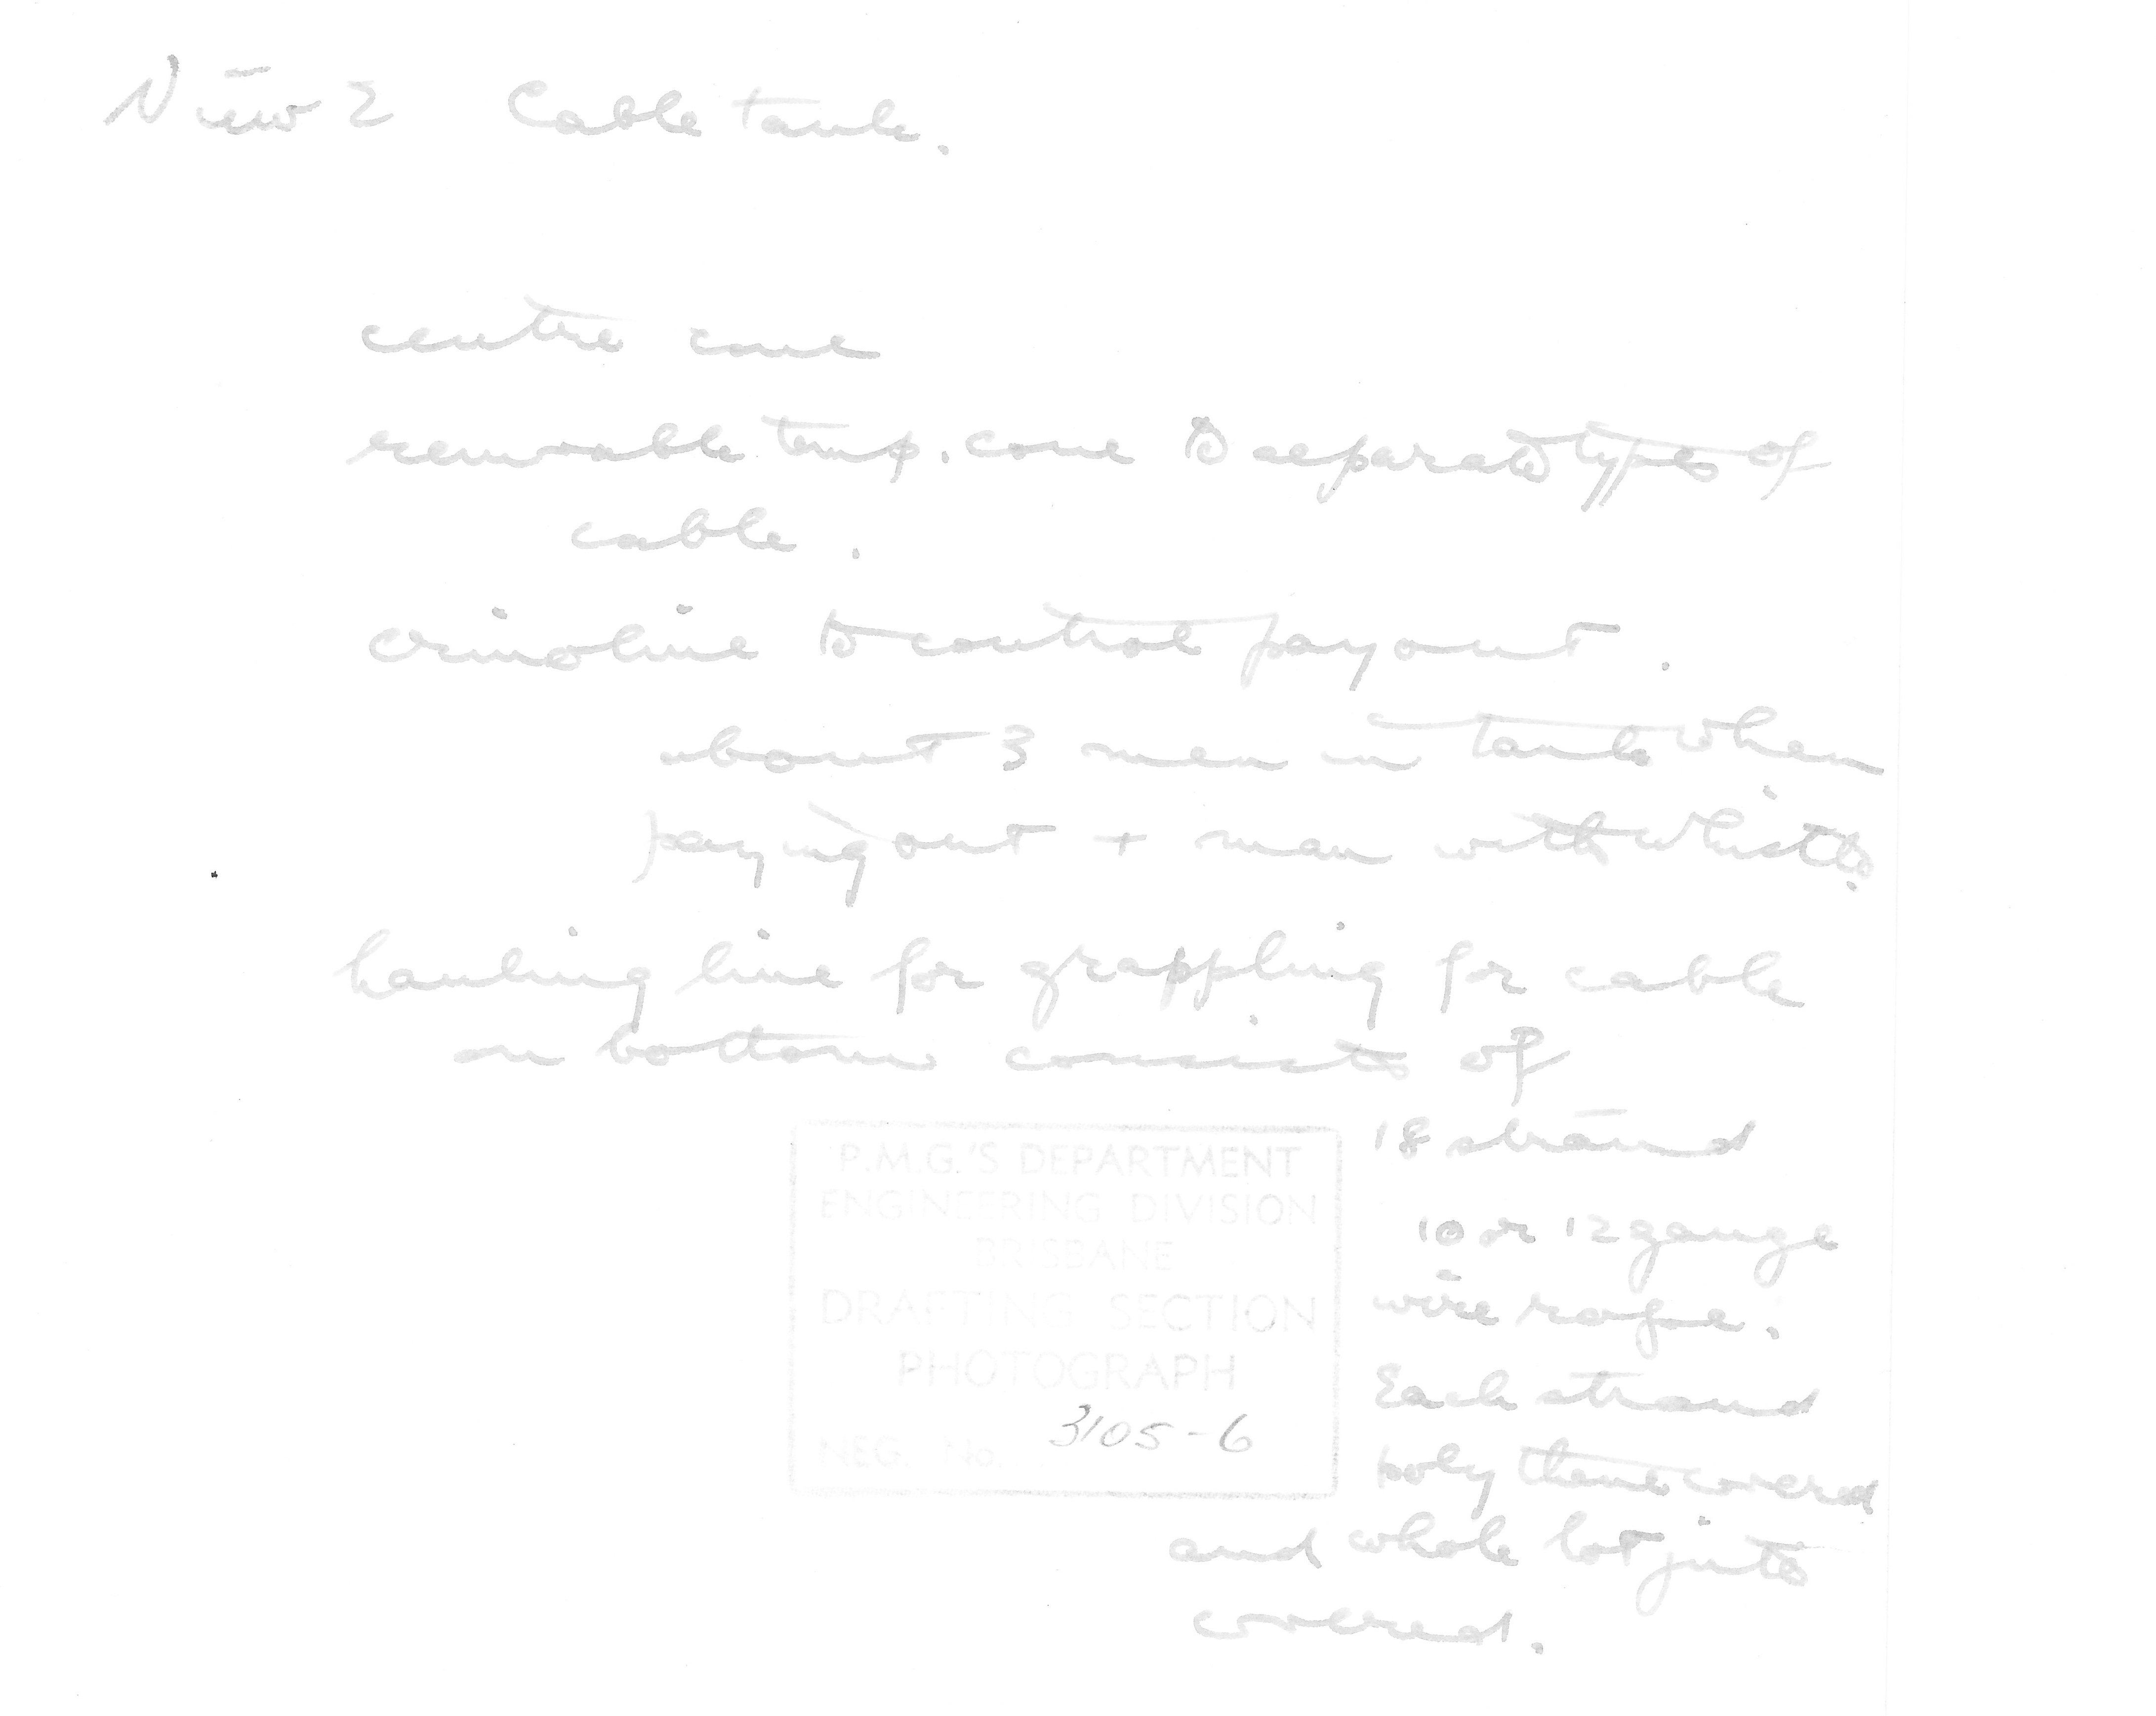 View 2 Cable tank.
centre cone
removable temp. cone to separate types of
cable.
crinoline to control payout.
about 3 men in tank when
paying out + man with whistle.
hauling line for grappling for cable
on bottom consists of
18 strand
10 or 12 gauge
wire rope.
Each strand
poly thene covered
and whole lot jute
covered.
P.M.G.'S DEPARTMENT
ENGINEERING DIVISION
BRISBANE
DRAFTING SECTION
PHOTOGRAPH
NEG. No. 3105-6